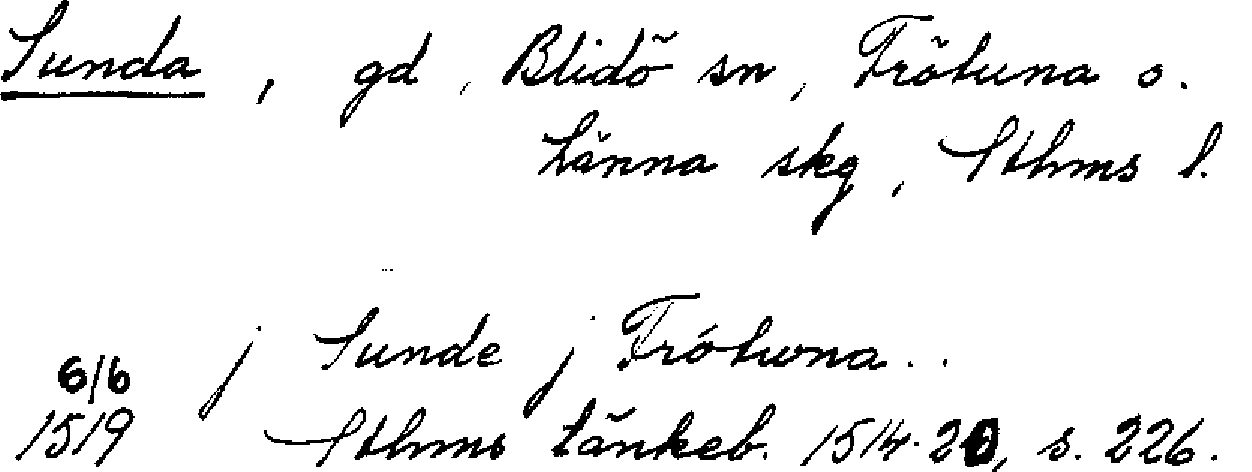 Sunda, gd, Blidö sn, Frötuna o.
Länna skg, Sthms l.
j Sunde j Frótwna..
6/6
1519 Sthms tänkeb. 1514-20, s. 226.